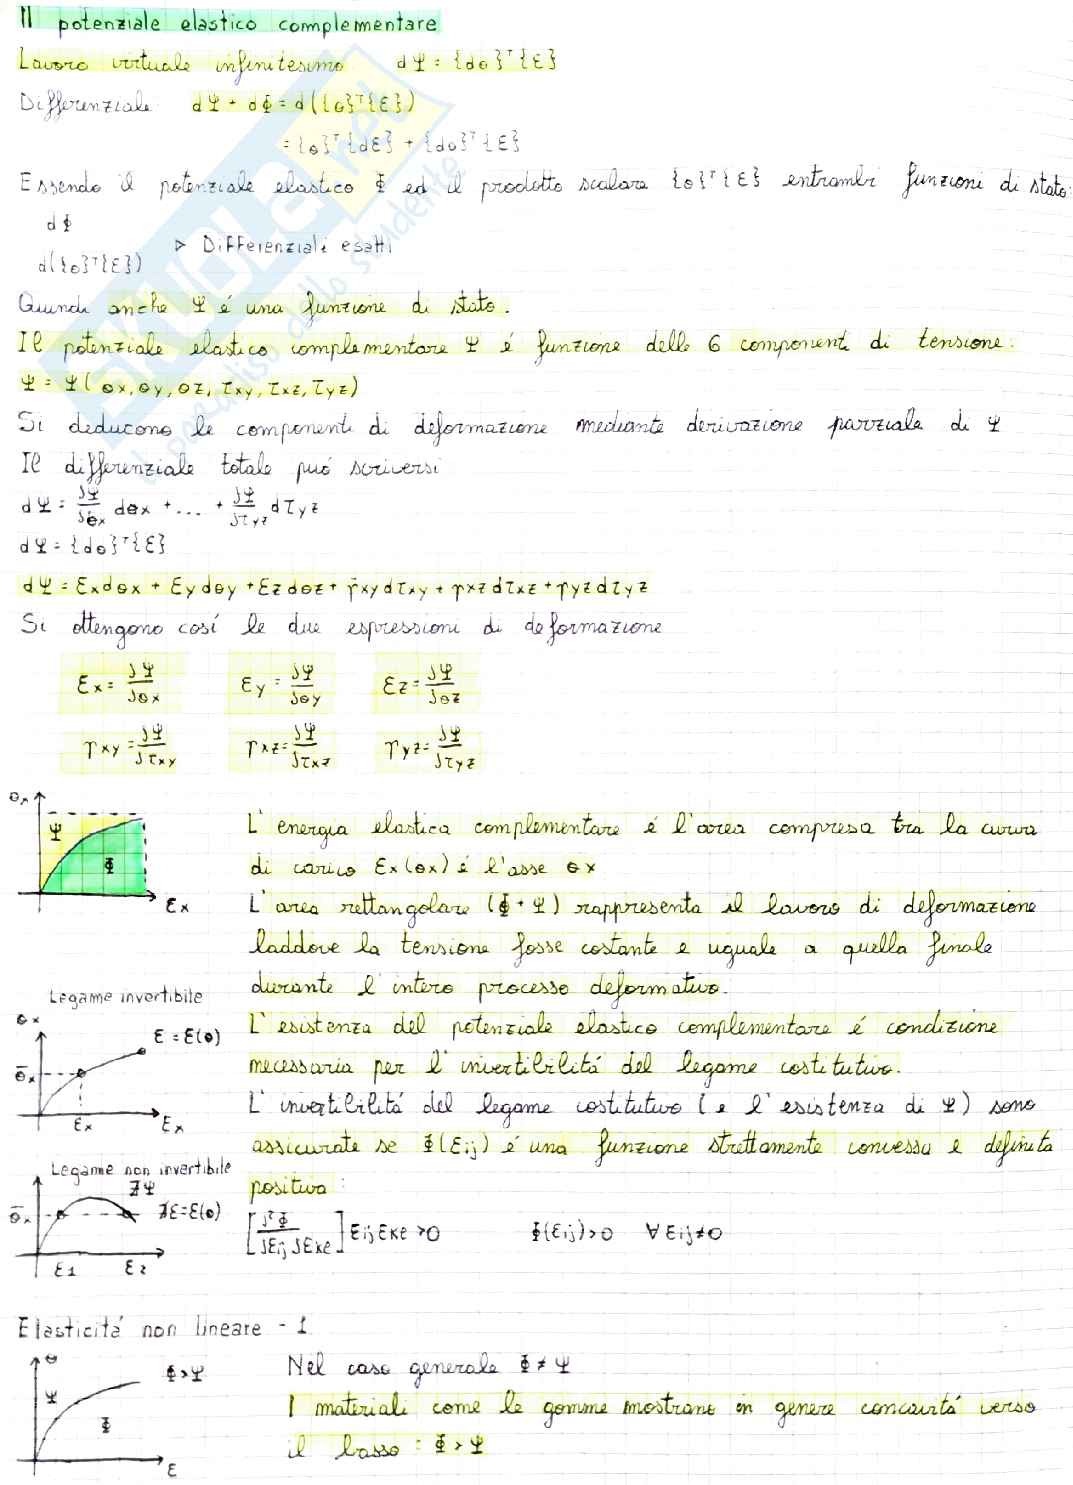 Il potenziale elastico complementare
Lavoro virtuale infinitesimo dΨ = {dσ}ᵀ{ε}
Differenziale dΨ + dΦ = d({σ}ᵀ{ε})
= {σ}ᵀ{dε} + {dσ}ᵀ{ε}
Essendo il potenziale elastico Φ ed il prodotto scalare {σ}ᵀ{ε} entrambi funzioni di stato:
dΦ
▷ Differenziali esatti
d({σ}ᵀ{ε})
Quindi anche Ψ é una funzione di stato.
Il potenziale elastico complementare Ψ é funzione delle 6 componenti di tensione:
Ψ = Ψ(σx, σy, σz, τxy, τxz, τyz)
Si deducono le componenti di deformazione mediante derivazione parziale di Ψ
Il differenziale totale puó scriversi
dΨ = ∂Ψ/∂σx dσx + ... + ∂Ψ/∂τyz dτyz
dΨ = {dσ}ᵀ{ε}
dΨ = εx dσx + εy dσy + εz dσz + γxy dτxy + γxz dτxz + γyz dτyz
Si ottengono cosí le due espressioni di deformazione
εx = ∂Ψ/∂σx εy = ∂Ψ/∂σy εz = ∂Ψ/∂σz
γxy = ∂Ψ/∂τxy γxz = ∂Ψ/∂τxz γyz = ∂Ψ/∂τyz
σx
Ψ
Φ
εx
L'energia elastica complementare é l'area compresa tra la curva
di carico εx(σx) é l'asse σx
L'area rettangolare (Φ + Ψ) rappresenta il lavoro di deformazione
laddove la tensione fosse costante e uguale a quella finale
durante l'intero processo deformativo.
Legame invertibile
σx
ε = ε(σ)
σ̄x
εx εx
L'esistenza del potenziale elastico complementare é condizione
necessaria per l'invertibilitá del legame costitutivo.
L'invertibilitá del legame costitutivo (e l'esistenza di Ψ) sono
assicurate se Φ(εij) é una funzione strettamente convessa e definita
positiva:
Legame non invertibile
∄Ψ
σ̄x ∄ε = ε(σ)
ε1 ε2
[∂²Φ/∂εij ∂εke] εij εke > 0 Φ(εij) > 0 ∀ εij ≠ 0
Elasticitá non lineare - 1
σ
Φ > Ψ
Ψ
Φ
ε
Nel caso generale Φ ≠ Ψ
I materiali come le gomme mostrano in genere concavitá verso
il basso: Φ > Ψ
SKUOLA.net
il paradiso dello studente